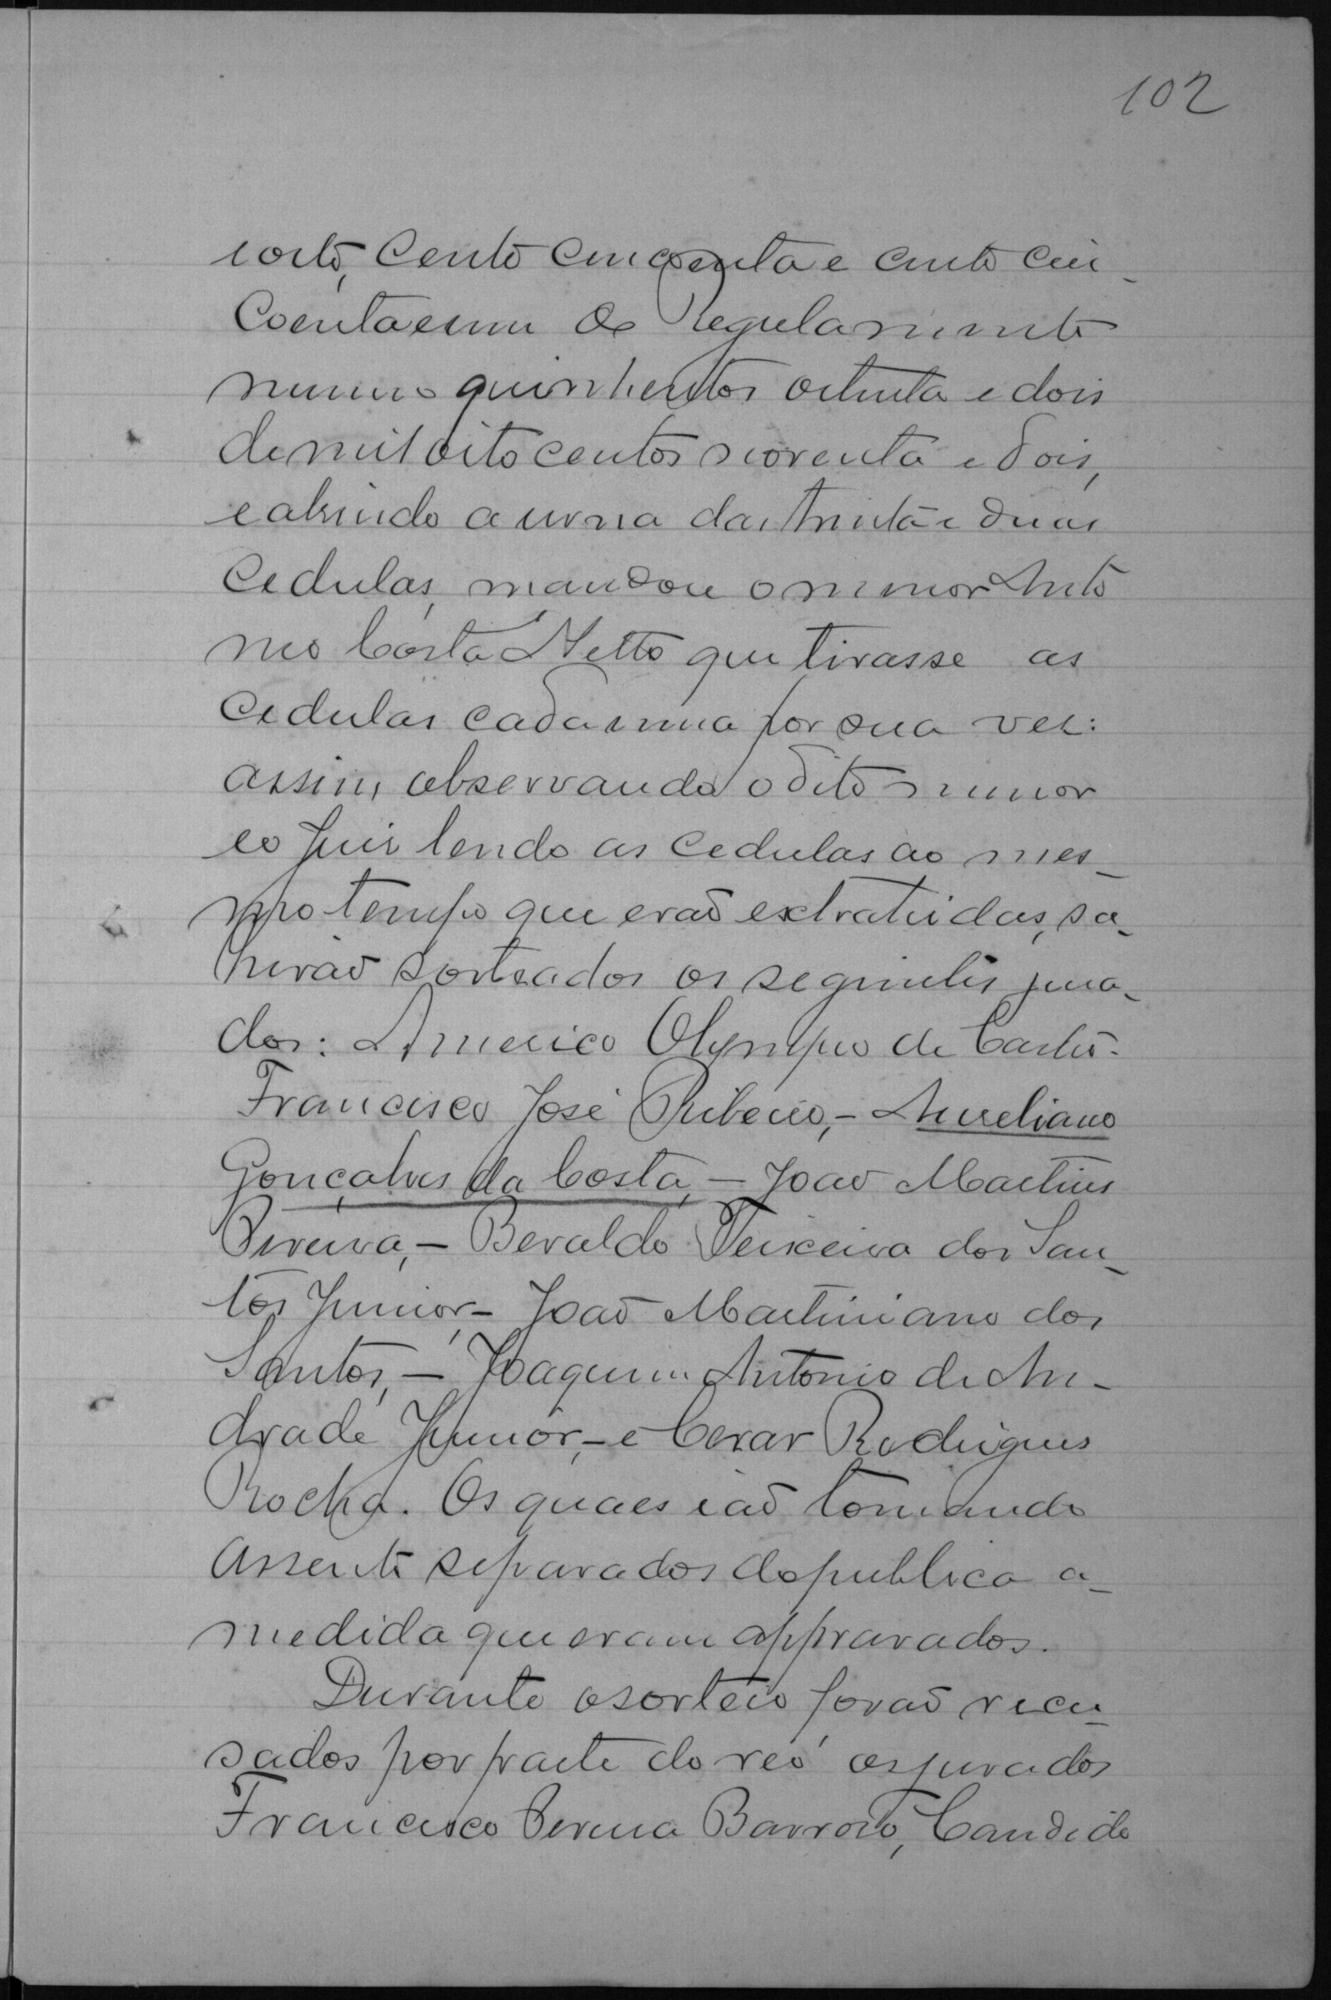 102
cento cincoenta e cento cin-
coenta e um do Regulamento
numero quinhentos oitenta e dois
de mil oito centos noventa e dois,
e abrindo a urna das trinta e duas
cedulas, mandou o menor Anto
nio Costa Netto que tirasse as
cedulas cada uma por sua vez:
assim observando o dito menor
e o Juiz lendo as cedulas ao mes-
mo tempo que erão extrahidas, sa-
hirão sorteados os seguintes jura-
dos: Americo Olympio de Castro.
Francisco José Ribeiro, - Aureliano
Gonçalves da Costa, - João Martins
Pereira, - Beraldo Teixeira dos San-
tos Junior, - João Martiniano dos
Santos, - Joaquim Antonio de An-
drade Junior, - e Cezar Rodrigues
Rocha. Os quaes ião tomando
assento separados do publico a-
medida que eram approvados.
Durante o sorteio forão recu-
sados por parte do reó os jurados
Francisco Pereira Barroso, Candido